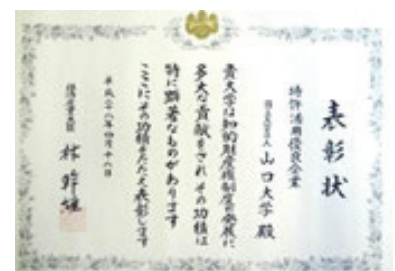 表彰状
特許活用優良企業
国立大学法人 山口大学 殿
貴大学は知的財産権制度の発展に
多大な貢献をされその功績は
特に顕著なものがあります
ここにその功績をたたえ表彰します
平成二八年四月十八日
経済産業大臣 林幹雄